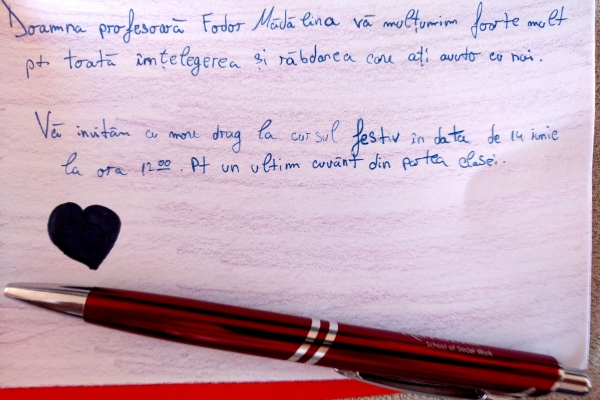 Doamna profesoară Fodor Mădălina vă mulțumim foarte mult
pt toată înțelegerea și răbdarea care ați avut-o cu noi.
Vă invităm cu mare drag la cursul festiv în data de 14 iunie
la ora 12⁰⁰. Pt un ultim cuvânt din partea clasei.
School of Social Work